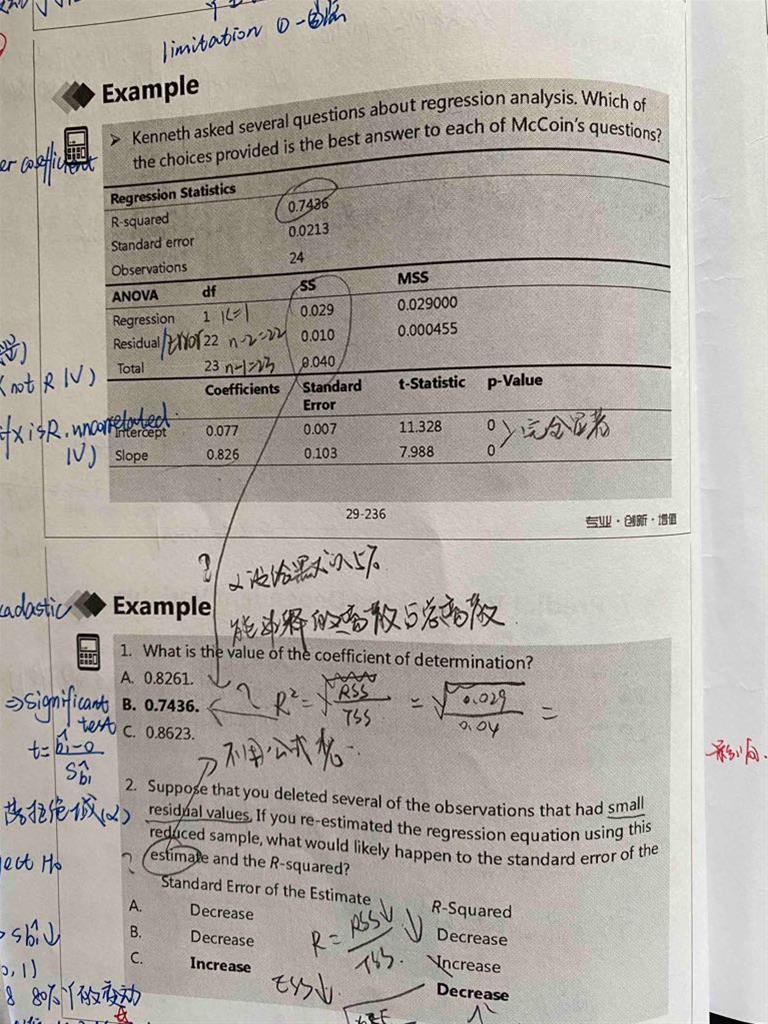 limitation ① -
Example
er coefficient
➤ Kenneth asked several questions about regression analysis. Which of
the choices provided is the best answer to each of McCoin's questions?
Regression Statistics
R-squared 0.7436
Standard error 0.0213
Observations 24
ANOVA df SS MSS
Regression 1 k=1 0.029 0.029000
Residual/Error 22 n-2=22 0.010 0.000455
Total 23 n-1=23 0.040
(not R IV)
Coefficients Standard Error t-Statistic p-Value
if x is R. uncorrelated
Intercept 0.077 0.007 11.328 0
IV)
Slope 0.826 0.103 7.988 0
完全显著
29-236
专业·创新·增值
? α没给默认5%
能解释的离散与总离散
Example
1. What is the value of the coefficient of determination?
A. 0.8261.
B. 0.7436. ? R² = √RSS/TSS = √0.029/0.04 =
C. 0.8623.
不用公式
⇒significant
test
t= b̂₁-0 / Sb̂₁
2. Suppose that you deleted several of the observations that had small
residual values. If you re-estimated the regression equation using this
reduced sample, what would likely happen to the standard error of the
? estimate and the R-squared?
ject H₀
Standard Error of the Estimate R-Squared
A. Decrease Decrease
B. Decrease Increase
C. Increase Decrease
R = RSS↓/TSS. ↓
Sb̂₁↓
0,1)
80% Y的变动